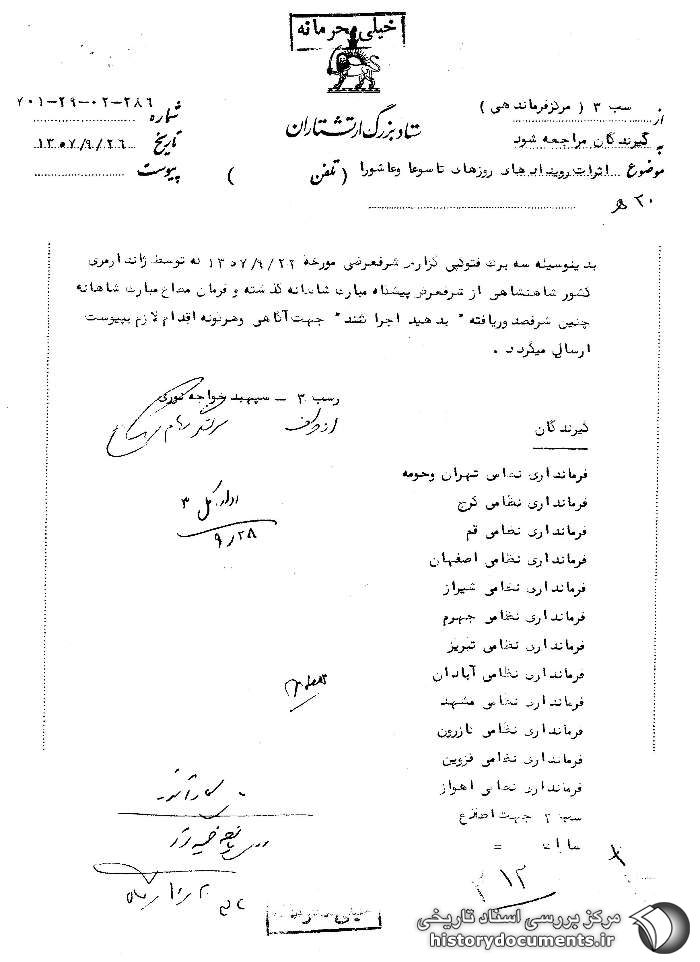 خیلی محرمانه
ستاد بزرگ ارتشتاران
از سب ۳ (مرکز فرماندهی)
به گیرندگان مراجعه شود
موضوع اثرات رویدادهای روزهای تاسوعا وعاشورا (تلفن )
شماره ۷۰۱-۲۹-۰۲-۲۸۶
تاریخ ۱۳۵۷/۹/۲۶
پیوست
۲۰ ه
بدینوسیله سه برگ فتوکپی گزارش شرفعرضی مورخه ۱۳۵۷/۹/۲۲ که توسط ژاندارمری
کشور شاهنشاهی از شرفعرض پیشگاه مبارک شاهانه گذشته و فرمان مطاع مبارک شاهانه
چنین شرفصدوریافته "بدهید اجرا کنند" جهت آگاهی وهرگونه اقدام لازم بپیوست
ارسال میگردد .
رسب ۳ - سپهبد خواجه نوری
از طرف
گیرندگان
فرمانداری نظامی تهران وحومه
فرمانداری نظامی کرج
فرمانداری نظامی قم
فرمانداری نظامی اصفهان
فرمانداری نظامی شیراز
فرمانداری نظامی جهرم
فرمانداری نظامی تبریز
فرمانداری نظامی آبادان
فرمانداری نظامی مشهد
فرمانداری نظامی کازرون
فرمانداری نظامی قزوین
فرمانداری نظامی اهواز
سب ۲ جهت اطلاع
اداره کل ۳
۹/۲۸
۲۱۲
خیلی محرمانه
مرکز بررسی اسناد تاریخی
historydocuments.ir